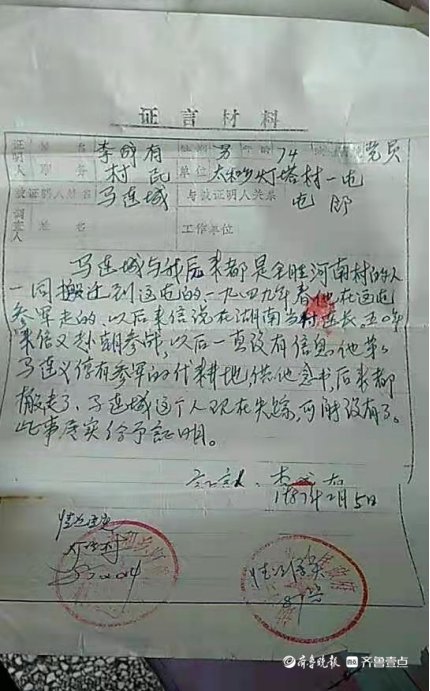 证言材料
证明人 姓名 李成有 性别 男 年龄 74 党员
职务 村民 单位 灯塔村一屯
被证明人姓名 马连城 与被证明人关系 屯邻
调查人 姓名 工作单位
马连城与我后来都是 河南村的人
一同搬迁到这屯的一九四九年春他在这屯
参军走的，以后来信说在湖南当 连长。五〇年
来信又赴朝参战，以后一直没有信息。他弟
马连义 有参军的代耕地，供他念书，后来都
搬走了，马连城这个人现在失踪，可能没有了。
此事属实给予证明。
证言人：李成有
1987年2月5日
情况属实
灯塔村
情况属实
齐鲁晚报 齐鲁壹点